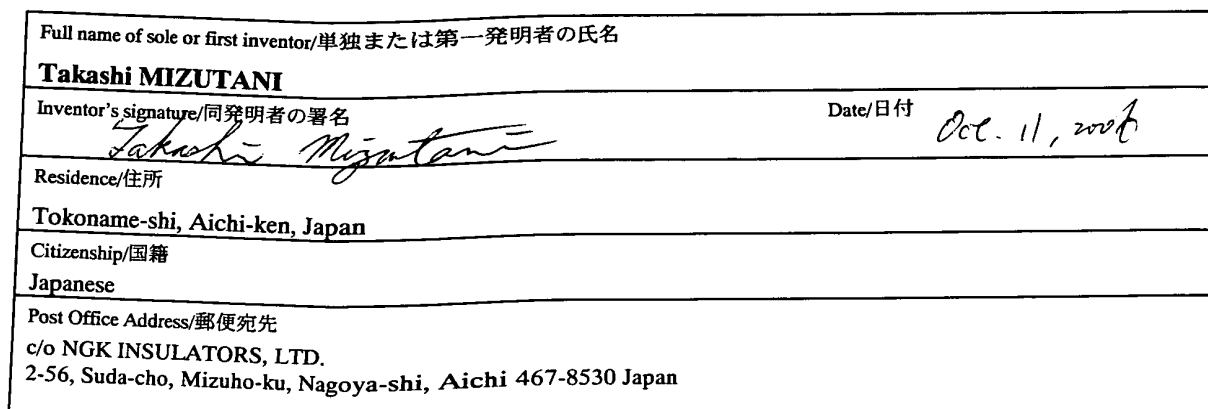 Full name of sole or first inventor/単独または第一発明者の氏名
Takashi MIZUTANI
Inventor's signature/同発明者の署名 Date/日付
Takashi Mizutani Oct. 11,
Residence/住所
Tokoname-shi, Aichi-ken, Japan
Citizenship/国籍
Japanese
Post Office Address/郵便宛先
c/o NGK INSULATORS, LTD.
2-56, Suda-cho, Mizuho-ku, Nagoya-shi, Aichi 467-8530 Japan